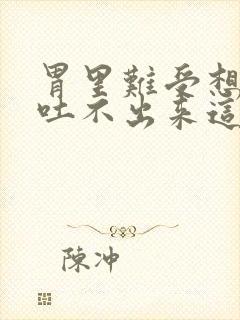 胃里難受想
吐不出来這
陳冲